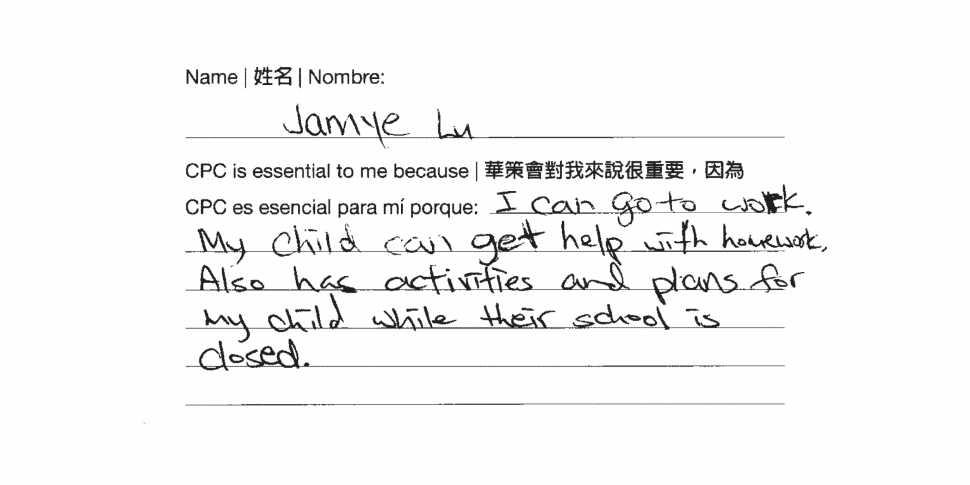 Name | 姓名 | Nombre:
Jamye Lu
CPC is essential to me because | 華策會對我來說很重要，因為
CPC es esencial para mí porque: I can go to work.
My child can get help with homework.
Also has activities and plans for
my child while their school is
closed.